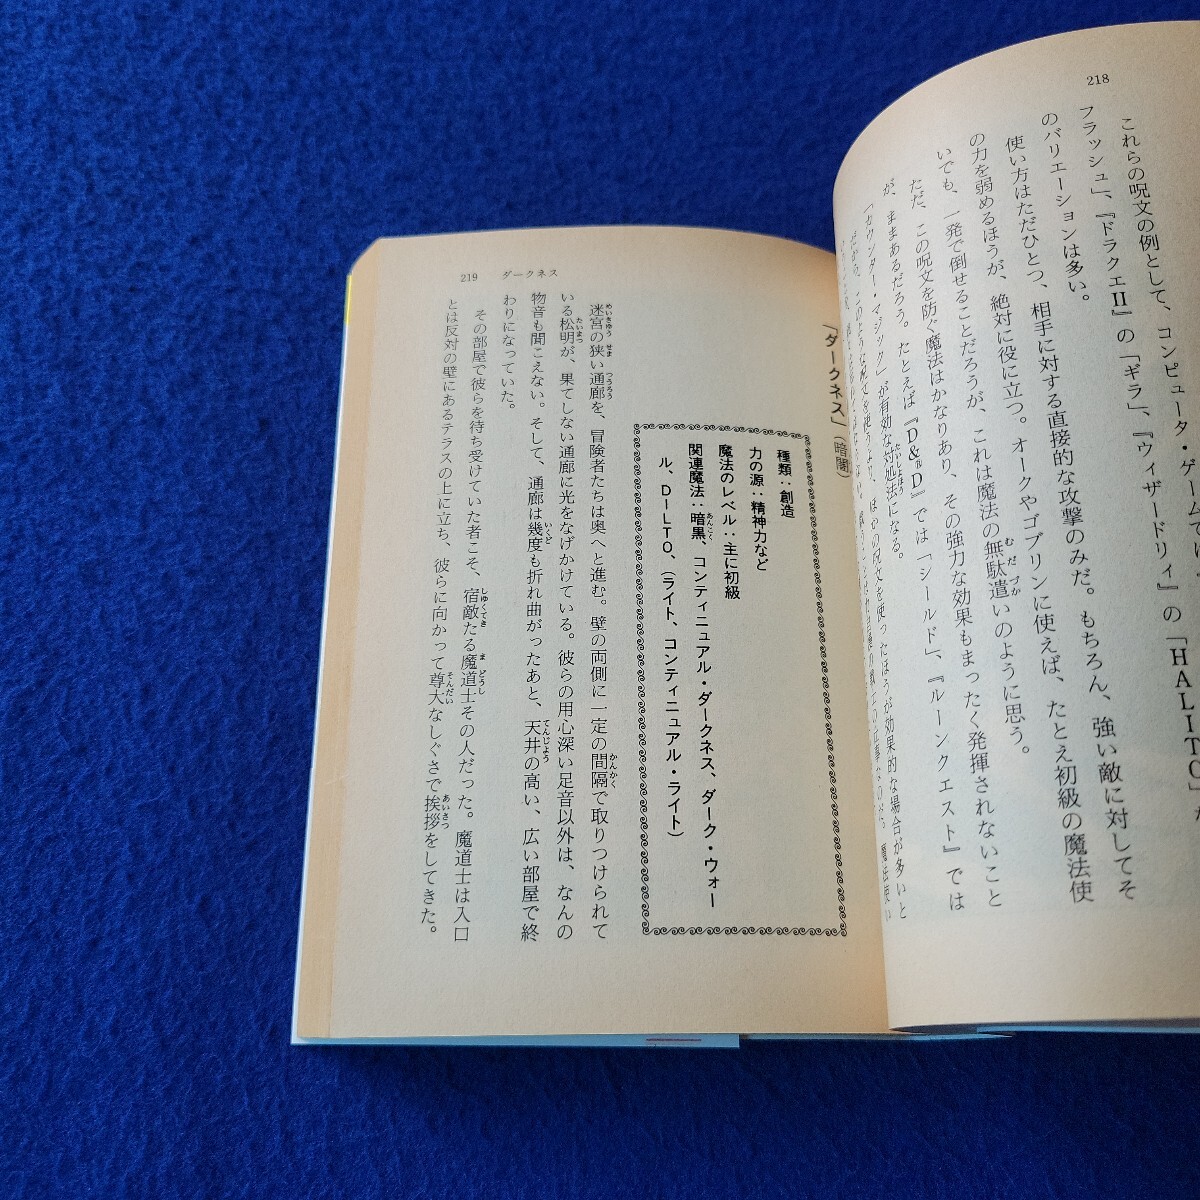 218
これらの呪文の例として、コンピュータ・ゲームでは、
フラッシュ」、『ドラクエII』の「ギラ」、『ウィザードリィ』の「HALITO」
のバリエーションは多い。
使い方はただひとつ、相手に対する直接的な攻撃のみだ。もちろん、強い敵に対してそ
の力を弱めるほうが、絶対に役に立つ。オークやゴブリンに使えば、たとえ初級の魔法使
いでも、一発で倒せることだろうが、これは魔法の無駄遣いのように思う。
ただ、この呪文を防ぐ魔法はかなりあり、その強力な効果もまったく発揮されないこと
が、ままあるだろう。たとえば『D&D』では「シールド」、『ルーンクエスト』では
「カウンター・マジック」が有効な対処法になる。
だから、このような呪文を使うより、ほかの呪文を使ったほうが効果的な場合が多いと
219 ダークネス
「ダークネス」(暗闇)
種類：創造
力の源：精神力など
魔法のレベル：主に初級
関連魔法：暗黒、コンティニュアル・ダークネス、ダーク・ウォー
ル、DILTO、(ライト、コンティニュアル・ライト)
迷宮の狭い通廊を、冒険者たちは奥へと進む。壁の両側に一定の間隔で取りつけられて
いる松明が、果てしない通廊に光をなげかけている。彼らの用心深い足音以外は、なんの
物音も聞こえない。そして、通廊は幾度も折れ曲がったあと、天井の高い、広い部屋で終
わりになっていた。
その部屋で彼らを待ち受けていた者こそ、宿敵たる魔道士その人だった。魔道士は入口
とは反対の壁にあるテラスの上に立ち、彼らに向かって尊大なしぐさで挨拶をしてきた。